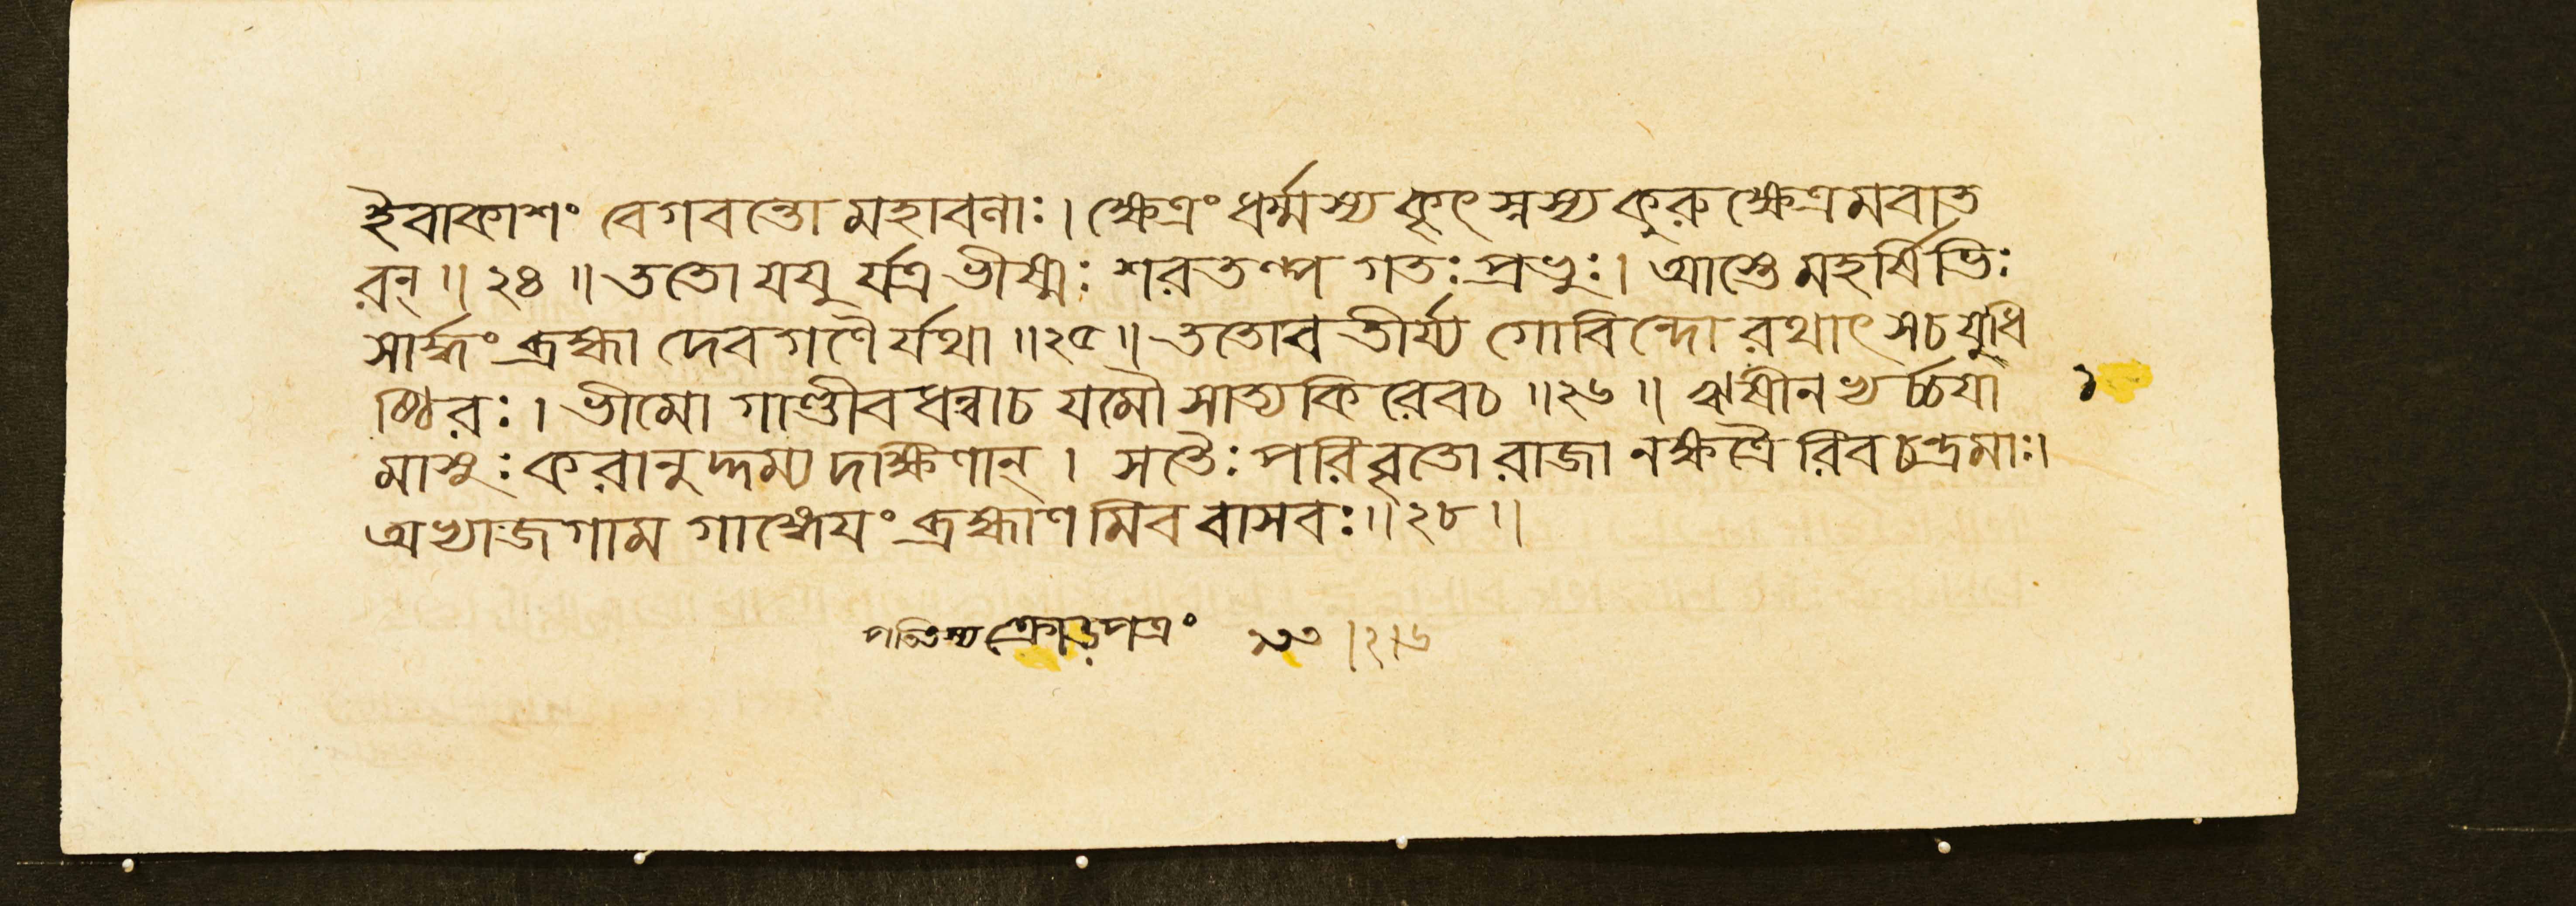 ইবাকাশং বেগবন্তো মহাবলাঃ। ক্ষেত্রং ধর্ম্মস্য কৃৎস্নস্য কুরুক্ষেত্রমবাত
রন্॥ ২৪ ॥ ততো যযু র্যত্র ভীষ্মঃ শরতল্প গতঃ প্রভুঃ। আস্তে মহর্ষিভিঃ
সার্দ্ধং ব্রহ্মা দেবগণৈ র্যথা ॥২৫॥ ততোব তীর্য্য গোবিন্দো রথাৎ সচ যুধি
ষ্ঠিরঃ। ভীমো গাণ্ডীবধন্বাচ যমৌ সাত্যকি রেবচ ॥২৬॥ ঋষীনভ্যর্চ্চয়া
মাসুঃ করানুদ্দম্য দক্ষিণান্। সতৈঃ পরিবৃতো রাজা নক্ষত্রৈ রিব চন্দ্রমাঃ।
অভ্যাজগাম গাঙ্গেয়ং ব্রহ্মাণমিব বাসবঃ॥ ২৮॥
ক্রোড়পত্রং